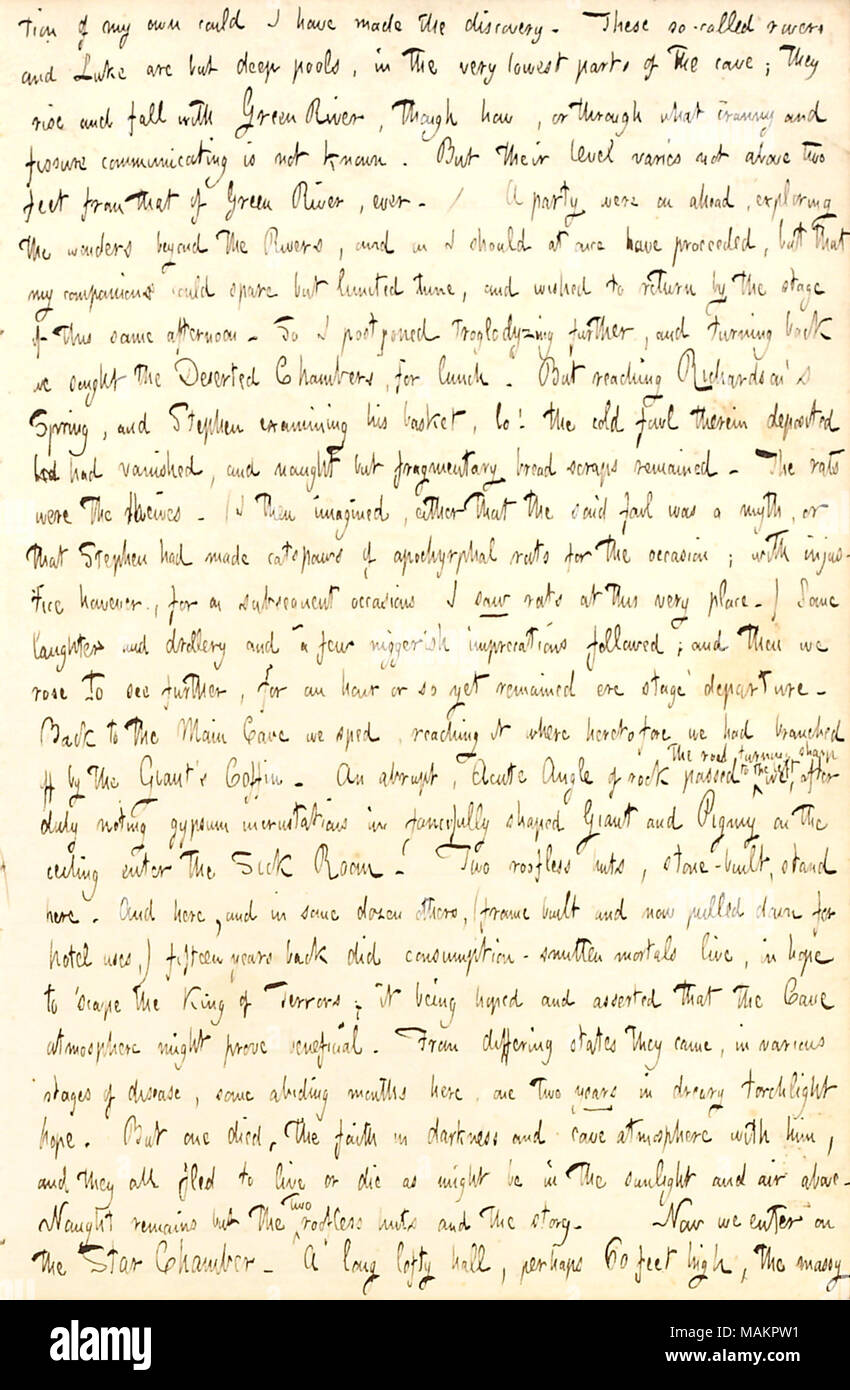 tion of my own could I have made the discovery. These so-called rivers
and Lake are but deep pools, in the very lowest parts of the cave; they
rise and fall with Green River, though how, or through what cranny and
fissure communicating is not known. But their level varies not above two
feet from that of Green River, ever. / A party were on ahead, exploring
the wonders beyond the Rivers, and on I should at once have proceeded, but that
my companions could spare but limited time, and wished to return by the stage
of this same afternoon. So I postponed Troglodyzing further, and turning back
we sought the Deserted Chambers, for lunch. But reaching Richardson's
Spring, and Stephen examining his basket, lo! the cold fowl therein deposited
had had vanished, and naught but fragmentary bread scraps remained. The rats
were the theives. (I then imagined, either that the said fowl was a myth, or
that Stephen had made catspaws of apochyrphal rats for the occasion; with injus-
tice however, for on subsequent occasions I saw rats at this very place.) Some
laughter and drollery and a few niggerish imprecations followed; and then we
rose to see further, for an hour or so yet remained ere stage departure.
Back to the Main Cave we sped, reaching it where heretofore we had branched
off by the Giant's Coffin. An abrupt, Acute Angle of rock passed the road turning sharp to the left we, after
duly noting gypsum incrustations in fancifully shaped Giant and Pigmy on the
ceiling enter the Sick Room. Two roofless huts, stone-built, stand
here. And here, and in some dozen others, (frame built and now pulled down for
hotel uses,) fifteen years back did consumption-smitten mortals live, in hope
to 'scape the King of Terrors; it being hoped and asserted that the Cave
atmosphere might prove beneficial. From differing states they came, in various
stages of disease, some abiding months here, one two years in dreary torchlight
hope. But one died, the faith in darkness and cave atmosphere with him,
and they all fled to live or die as might be in the sunlight and air above.
Naught remains but the two roofless huts and the story. Now we enter on
the Star Chamber. A long lofty hall, perhaps 60 feet high, the massy
alamy
Image ID: MAKPW1
www.alamy.com